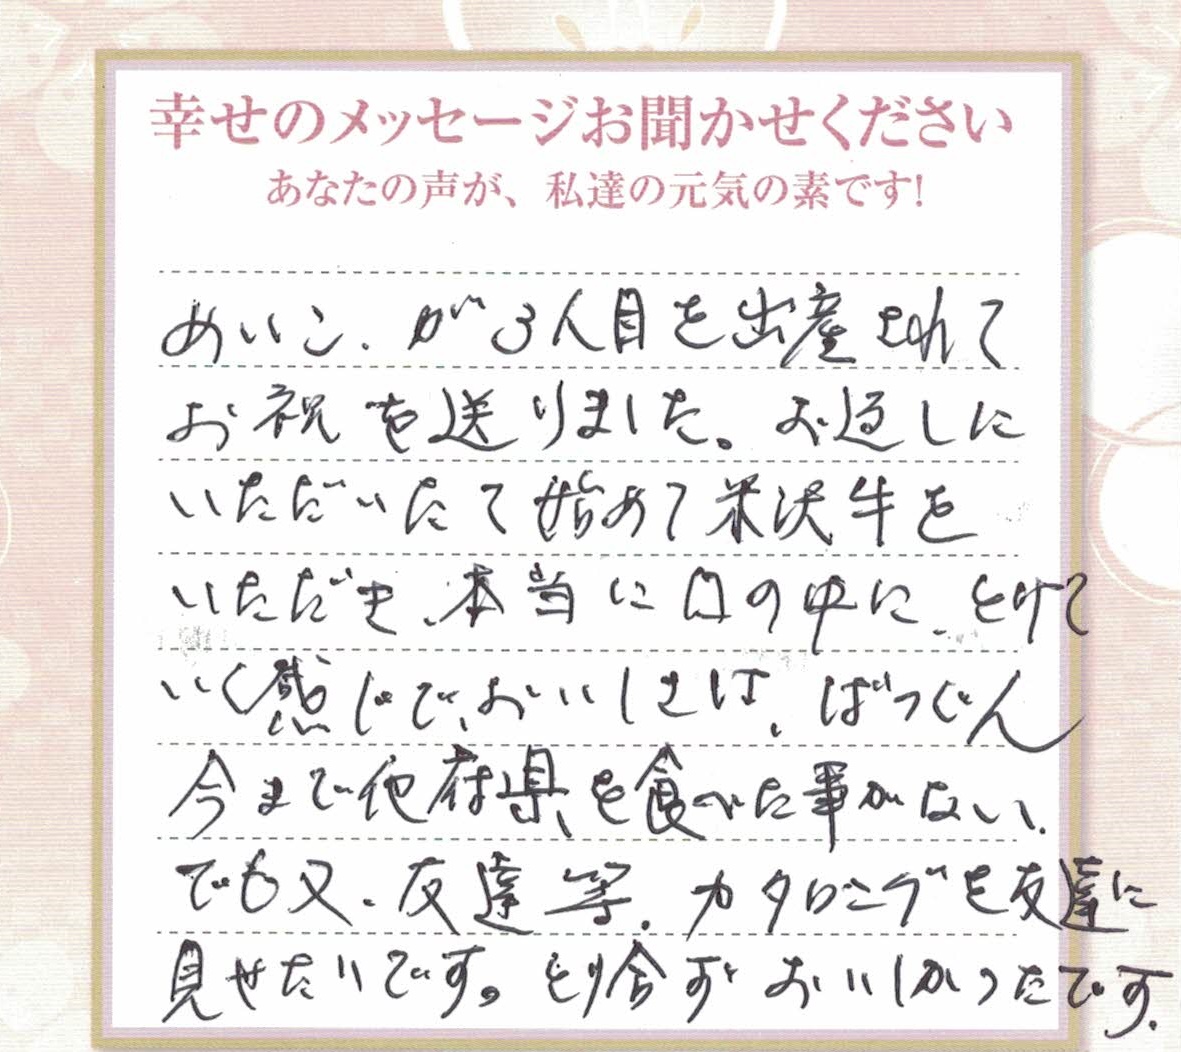 幸せのメッセージお聞かせください
あなたの声が、私達の元気の素です!
めいこ、が3人目を出産されて
お祝を送りました。お返しに
いただいたて始めて米沢牛を
いただき、本当に口の中に、とけて
いく感じで、おいしさは、ばつぐん
今まで他府県を食べた事がない、
でも又、友達等、カタログを友達に
見せたいです。とり合ずおいしかったです.